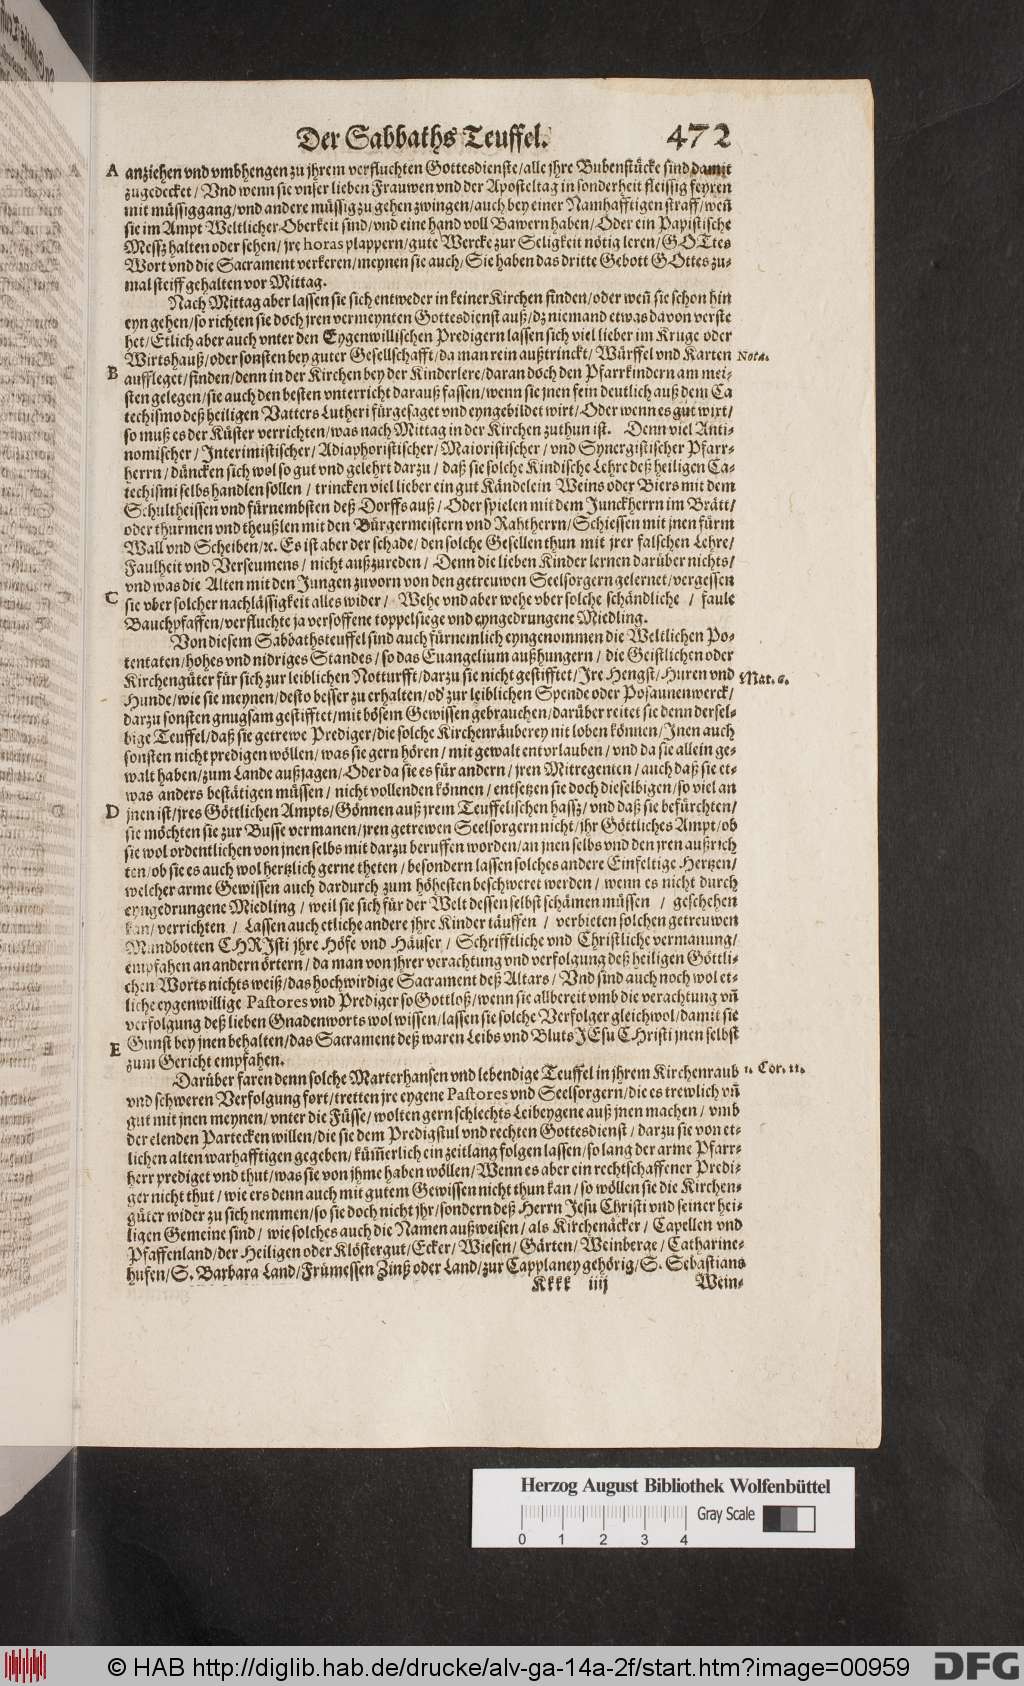 Der Sabbaths Teuffel. 472
A anziehen vnd vmbhengen zu jhrem verfluchten Gottesdienste/alle jhre Bubenstücke sind damit
zugedecket/ Vnd wenn sie vnser lieben Frauwen vnd der Aposteltag in sonderheit fleissig feyren
mit müssiggang/vnd andere müssig zu gehen zwingen/auch bey einer Namhafftigen straff/weñ
sie im Ampt Weltlicher Oberkeit sind/vnd eine hand voll Bawern haben/ Oder ein Papistische
Messz halten oder sehen/ jre horas plappern/gute Wercke zur Seligkeit nötig leren/ GOTtes
Wort vnd die Sacrament verkeren/meynen sie auch/ Sie haben das dritte Gebott GOttes zu-
mal steiff gehalten vor Mittag.
Nach Mittag aber lassen sie sich entweder in keiner Kirchen finden/oder weñ sie schon hin
eyn gehen/so richten sie doch jren vermeynten Gottesdienst auß/dz niemand etwas davon verste
het/Etlich aber auch vnter den Eygenwillischen Predigern lassen sich viel lieber im Kruge oder
Wirtshauß/oder sonsten bey guter Gesellschafft/da man rein außtrinckt/ Würffel vnd Karten Nota.
B auffleget/finden/denn in der Kirchen bey der Kinderlere/daran doch den Pfarrkindern am mei-
sten gelegen/sie auch den besten vnterricht darauß fassen/wenn sie jnen fein deutlich auß dem Ca
techismo deß heiligen Vatters Lutheri fürgesaget vnd eyngebildet wirt/ Oder wenn es gut wirt/
so muß es der Küster verrichten/was nach Mittag in der Kirchen zuthun ist. Denn viel Anti-
nomischer/ Interimistischer/ Adiaphoristischer/ Maioristischer/ vnd Synergistischer Pfarr-
herrn/ düncken sich wol so gut vnd gelehrt darzu/ daß sie solche Kindische Lehre deß heiligen Ca-
techismi selbs handlen sollen/ trincken viel lieber ein gut Kändelein Weins oder Biers mit dem
Schultheissen vnd fürnembsten deß Dorffs auß/ Oder spielen mit dem Junckherrn im Brätt/
oder thurmen vnd theußlen mit den Bürgermeistern vnd Rahtherrn/Schiessen mit jnen fürm
Wall vnd Scheiben/ꝛc. Es ist aber der schade/den solche Gesellen thun mit jrer falschen Lehre/
Faulheit vnd Verseumens/ nicht außzureden/ Denn die lieben Kinder lernen darüber nichts/
vnd was die Alten mit den Jungen zuvorn von den getreuwen Seelsorgern gelernet/vergessen
C sie vber solcher nachlässigkeit alles wider/ Wehe vnd aber wehe vber solche schändliche / faule
Bauchpfaffen/verfluchte ja versoffene toppelsiege vnd eyngedrungene Miedling.
Von diesem Sabbathsteuffel sind auch fürnemlich eyngenommen die Weltlichen Po-
tentaten/hohes vnd nidriges Standes/ so das Euangelium außhungern/ die Geistlichen oder
Kirchengüter für sich zur leiblichen Notturfft/darzu sie nicht gestifftet/Jre Hengst/Huren vnd Mat. 6.
Hunde/wie sie meynen/desto besser zu erhalten/od' zur leiblichen Spende oder Posaunenwerck/
darzu sonsten gnugsam gestifftet/mit bösem Gewissen gebrauchen/darüber reitet sie denn dersel-
bige Teuffel/daß sie getrewe Prediger/die solche Kirchenräuberey nit loben können/Jnen auch
sonsten nicht predigen wöllen/was sie gern hören/ mit gewalt entvrlauben/ vnd da sie allein ge-
walt haben/zum Lande außjagen/Oder da sie es für andern/ jren Mitregenten/ auch daß sie et-
was anders bestätigen müssen/ nicht vollenden können/ entsetzen sie doch dieselbigen/so viel an
D jnen ist/jres Göttlichen Ampts/Gönnen auß jrem Teuffelischen hassz/ vnd daß sie befürchten/
sie möchten sie zur Busse vermanen/jren getrewen Seelsorgern nicht/jhr Göttliches Ampt/ob
sie wol ordentlichen von jnen selbs mit darzu beruffen worden/an jnen selbs vnd den jren außrich
ten/ob sie es auch wol hertzlich gerne theten/ besondern lassen solches andere Einfeltige Hertzen/
welcher arme Gewissen auch dardurch zum höhesten beschweret werden/ wenn es nicht durch
eyngedrungene Miedling/ weil sie sich für der Welt dessen selbst schämen müssen / geschehen
kan/verrichten/ Lassen auch etliche andere jhre Kinder täuffen/ verbieten solchen getreuwen
Mundbotten CHRJsti jhre Höfe vnd Häuser/ Schrifftliche vnd Christliche vermanung/
empfahen an andern örtern/da man von jhrer verachtung vnd verfolgung deß heiligen Göttli-
chen Worts nichts weiß/das hochwirdige Sacrament deß Altars/ Vnd sind auch noch wol et-
liche eygenwillige Pastores vnd Prediger so Gottloß/wenn sie allbereit vmb die verachtung vñ
verfolgung deß lieben Gnadenworts wol wissen/lassen sie solche Verfolger gleichwol/damit sie
E Gunst bey jnen behalten/das Sacrament deß waren Leibs vnd Bluts JEsu CHristi jnen selbst
zum Gericht empfahen.
Darüber faren denn solche Marterhansen vnd lebendige Teuffel in jhrem Kirchenraub 1. Cor. 11.
vnd schweren Verfolgung fort/tretten jre eygene Pastores vnd Seelsorgern/die es trewlich vñ
gut mit jnen meynen/ vnter die Füsse/ wolten gern schlechts Leibeygene auß jnen machen/ vmb
der elenden Partecken willen/die sie dem Predigstul vnd rechten Gottesdienst/ darzu sie von et-
lichen alten warhafftigen gegeben/ küm̃erlich ein zeitlang folgen lassen/so lang der arme Pfarr-
herr prediget vnd thut/was sie von jhme haben wöllen/Wenn es aber ein rechtschaffener Predi-
ger nicht thut/ wie ers denn auch mit gutem Gewissen nicht thun kan/ so wöllen sie die Kirchen-
güter wider zu sich nemmen/so sie doch nicht jhr/sondern deß Herrn Jesu Christi vnd seiner hei-
ligen Gemeine sind/ wie solches auch die Namen außweisen/ als Kirchenäcker/ Capellen vnd
Pfaffenland/der Heiligen oder Klöstergut/Ecker/ Wiesen/ Gärten/ Weinberge/ Catharine-
hufen/S. Barbara Land/Frümessen Zinß oder Land/zur Capplaney gehörig/ S. Sebastians
Kkkk iiij Wein-
Herzog August Bibliothek Wolfenbüttel
Gray Scale
0 1 2 3 4
© HAB http://diglib.hab.de/drucke/alv-ga-14a-2f/start.htm?image=00959 DFG